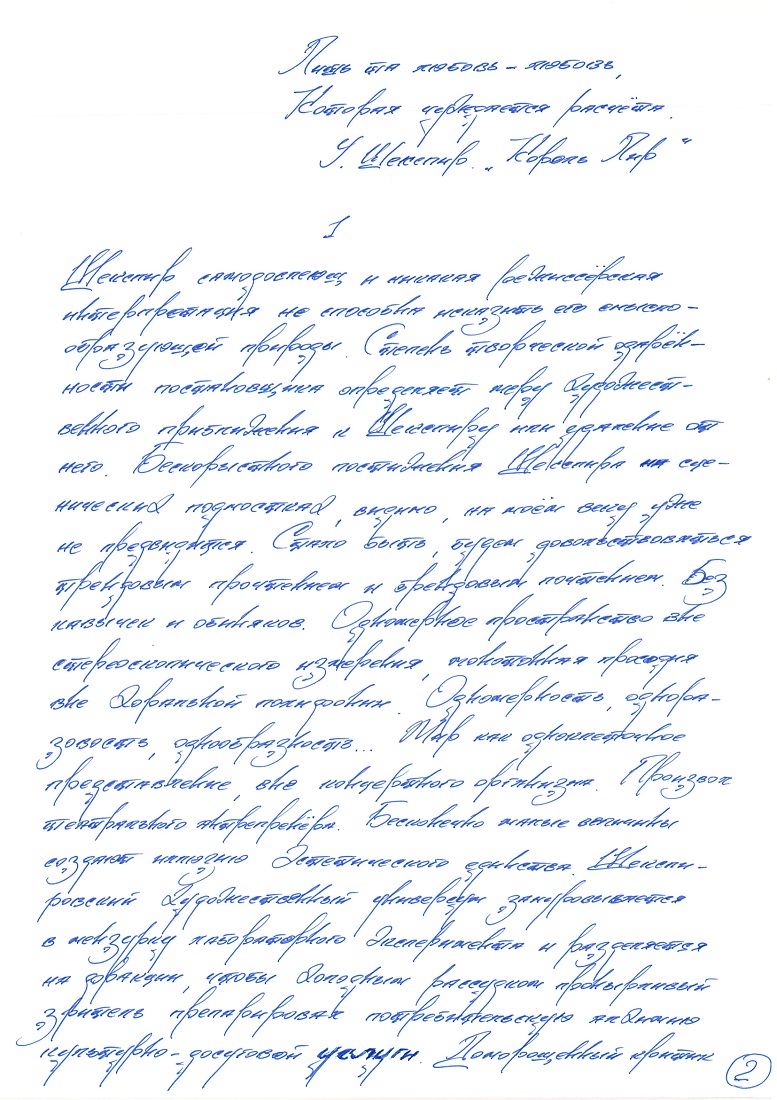 Лишь та любовь – любовь,
Которая чуждается расчёта.
У. Шекспир. „Король Лир“
I
Шекспир самодостаточен и никакая режиссёрская
интерпретация не способна исказить его смысло-
образующей природы. Степень творческой одарён-
ности постановщика определяет меру художест-
венного приближения к Шекспиру или удаление от
него. Бескорыстного постижения Шекспира на сце-
нических подмостках, видимо, на моём веку уже
не предвидится. Стало быть, будем довольствоваться
трендовым прочтением и брендовым почтением. Без
кавычек и обиняков. Одномерное пространство вне
стереоскопического измерения, монотонная просодия
вне хоральной полифонии. Одномерность, однора-
зовость, однообразность... Мир как одноклеточное
представление, вне концертного организма. Произвол
театрального антрепренёра. Бесконечно малые величины
создают иллюзию эстетического единства. Шекспи-
ровский художественный универсум замуровывается
в мензурку лабораторного эксперимента и разделяется
на фракции, чтобы холодным рассудком прокурливый
зритель препарировал потребительскую
культурно-досуговой услуги. Доморощенный критик
2